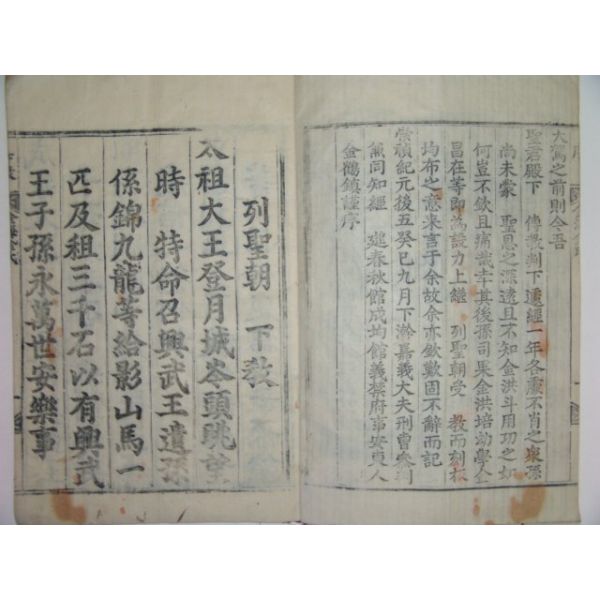 大駕之前則今吾
聖君殿下 傳教判下遹經一年各處不肖之衆孫
尚未蒙 聖恩之深遠且不知金洪斗用功之如
何豈不欽且痛哉幸其後孫司果金洪培幼學金
昌在等即為設力上繼 列聖朝受 教而刻板
均布之意來言于余故余亦欽歎固不辭而記
崇禎紀元後五癸巳九月下澣嘉義大夫刑曹參判
兼同知經 筵春秋館成均館義禁府事安東人
金鶴鎮謹序
列聖朝 下教
太祖大王登月城岑頭眺望
時 特命召興武王遺孫
係錦九龍等給影山馬一
匹及祖三千石以有興武
王子孫永萬世安樂事